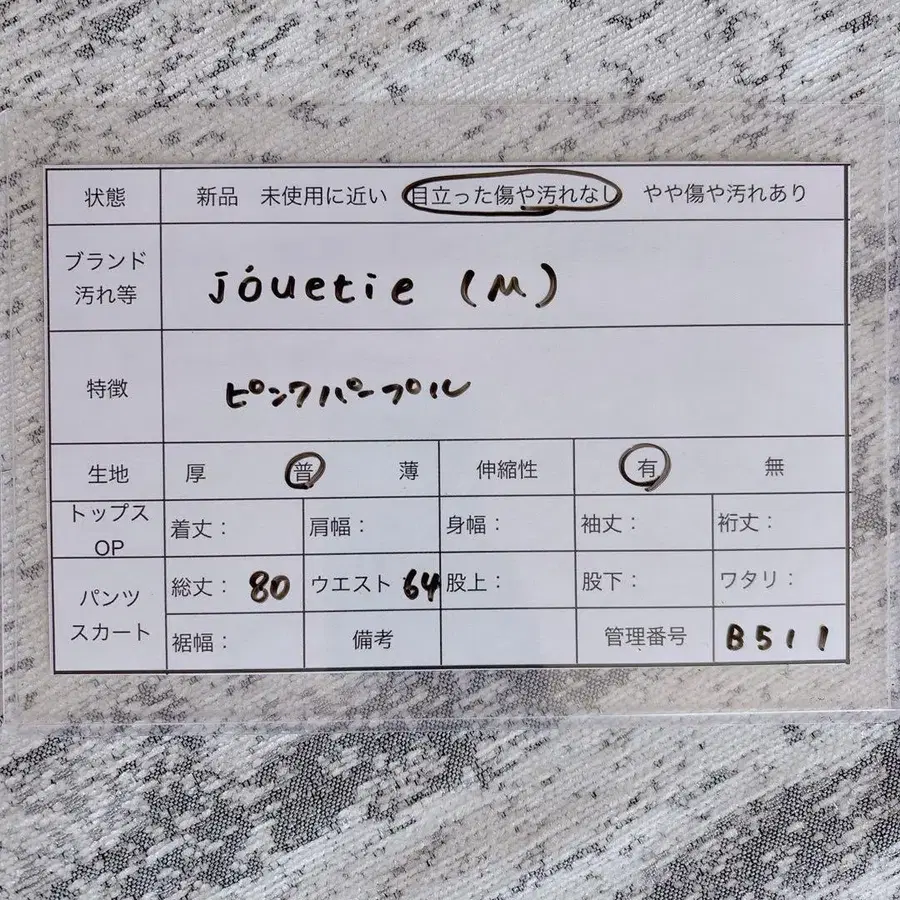 状態 新品 未使用に近い 目立った傷や汚れなし やや傷や汚れあり
ブランド
汚れ等
jouetie (M)
特徴 ピンクパープル
生地 厚 普 薄 伸縮性 有 無
トップス
OP
着丈: 肩幅: 身幅: 袖丈: 裄丈:
パンツ
スカート
総丈: 80 ウエスト 64 股上: 股下: ワタリ:
裾幅: 備考 管理番号 B511